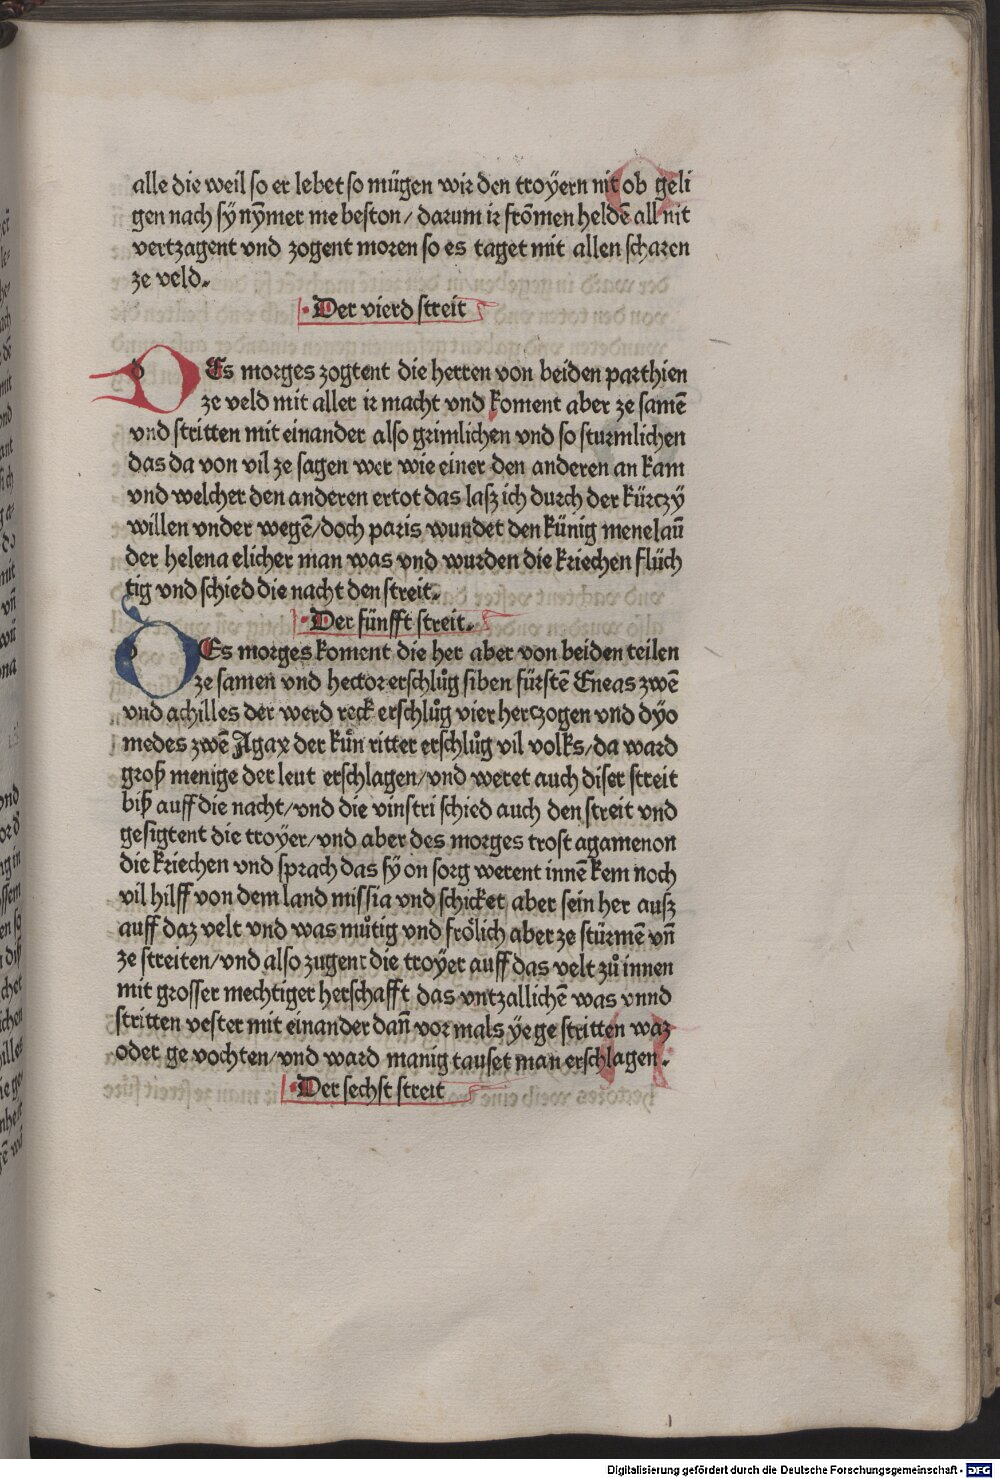 alle die weil so er lebet so mügen wir den troÿern nit ob geli
gen nach sÿ nÿmer me beston/ darum ir frōmen heldē all nit
vertzagent vnd zogent moren so es taget mit allen scharen
ze veld.
Der vierd streit
DEs morges zogtent die herren von beiden parthien
ze veld mit aller ir macht vnd koment aber ze samē
vnd stritten mit einander also grimlichen vnd so sturmlichen
das da von vil ze sagen wer wie einer den anderen an kam
vnd welcher den anderen ertot das lasz ich durch der kürczÿ
willen vnder wegē/doch paris wundet den künig menelaū
der helena elicher man was vnd wurden die kriechen flüch
tig vnd schied die nacht den streit.
Der fünfft streit.
DEs morges koment die her aber von beiden teilen
ze samen vnd hector erschlůg siben fürstē Eneas zwē
vnd achilles der werd reck erschlůg vier herczogen vnd dÿo
medes zwē Agax der kůn ritter erschlůg vil volks/da ward
groß menige der leut erschlagen/vnd weret auch diser streit
biß auff die nacht/vnd die vinstri schied auch den streit vnd
gesigtent die troÿer/vnd aber des morges trost agamenon
die kriechen vnd sprach das sÿ on sorg werent innē kem noch
vil hilff von dem land missia vnd schicket aber sein her ausz
auff daz velt vnd was můtig vnd frölich aber ze stürmē vn̄
ze streiten/vnd also zugent die troÿer auff das velt zů innen
mit grosser mechtiger herschafft das vntzallichē was vnnd
stritten vester mit einander dan̄ vor mals ÿe ge stritten waz
oder ge vochten/vnd ward manig tauset man erschlagen.
Der sechst streit
Digitalisierung gefördert durch die Deutsche Forschungsgemeinschaft - DFG